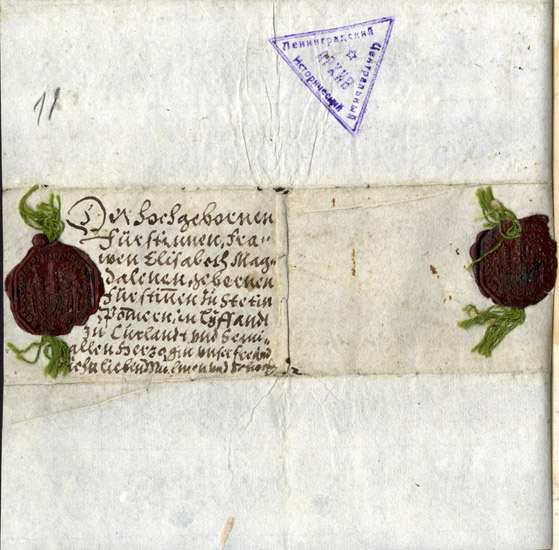 Ленинградский
Центральный
Исторический
АРХИВ
11
Der hochgebornen
Fürstinnen, Fra-
wen Elisabeth Mag-
dalenen, gebornen
Fürstinnen zu Stetin
Pomern, in Lyffandt
zu Curlandt und Semi-
gallen Hertzogin unser freund